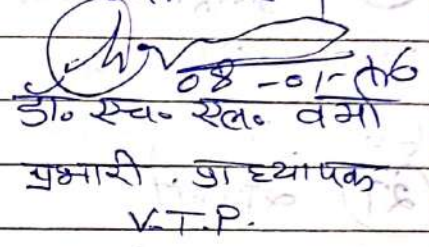 08-01-
डॉ. एच. एल. वर्मा
प्रभारी . प्राध्यापक
V.T.P.